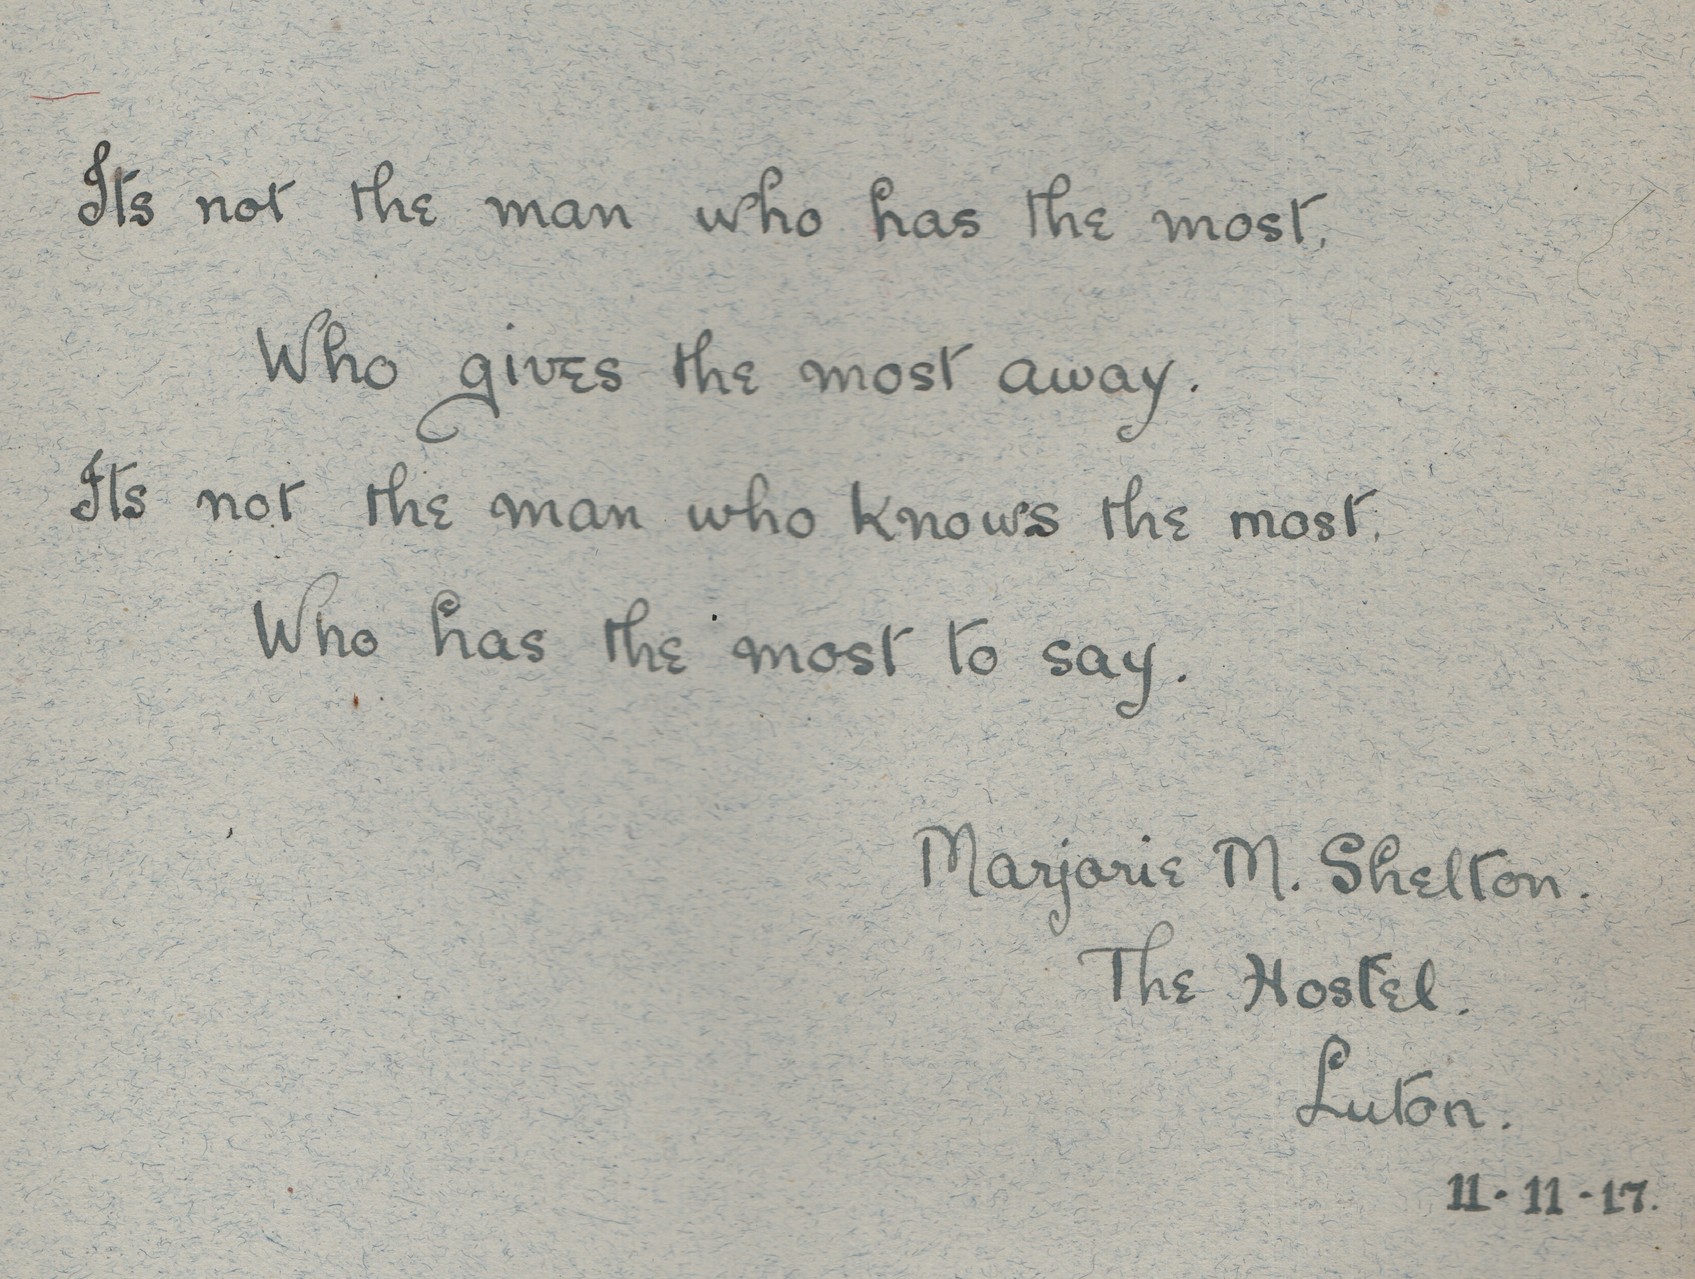 Its not the man who has the most,
Who gives the most away.
Its not the man who knows the most,
Who has the most to say.
Marjorie M. Shelton.
The Hostel.
Luton.
11-11-17.